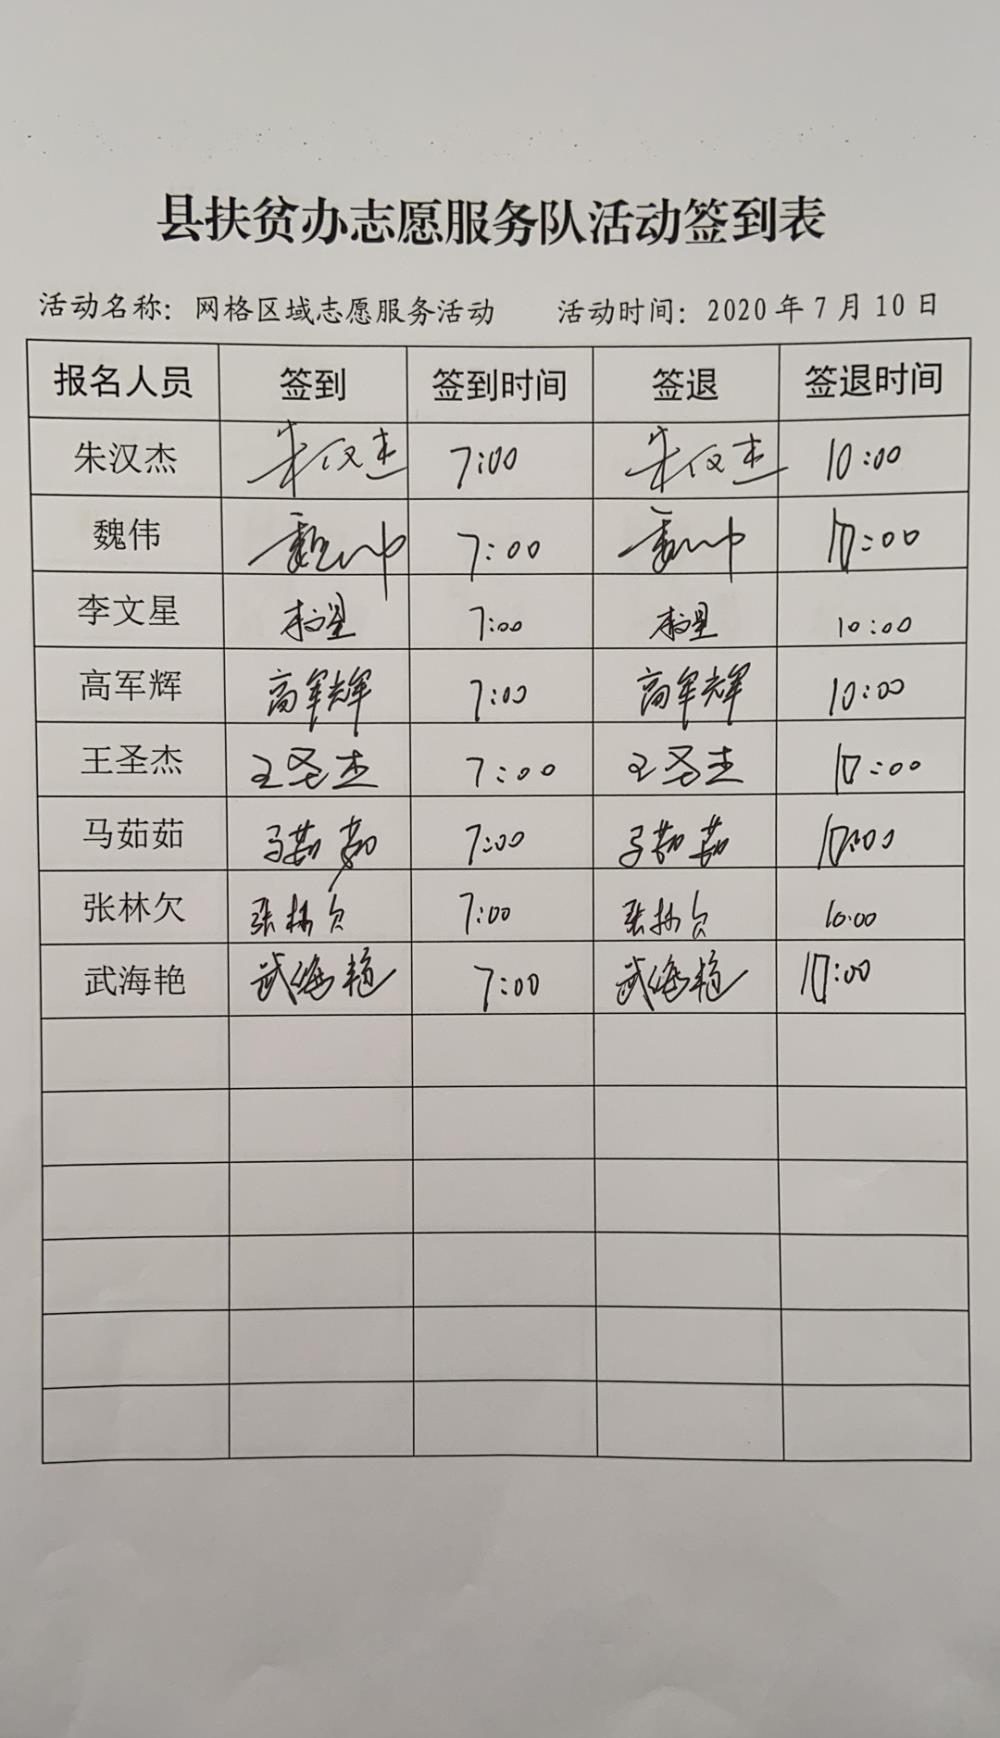 县扶贫办志愿服务队活动签到表
活动名称：网格区域志愿服务活动 活动时间：2020年7月10日
报名人员 签到 签到时间 签退 签退时间
朱汉杰 朱汉杰 7:00 朱汉杰 10:00
魏伟 魏伟 7:00 魏伟 10:00
李文星 李文星 7:00 李文星 10:00
高军辉 高军辉 7:00 高军辉 10:00
王圣杰 王圣杰 7:00 王圣杰 10:00
马茹茹 马茹茹 7:00 马茹茹 10:00
张林欠 张林欠 7:00 张林欠 10:00
武海艳 武海艳 7:00 武海艳 10:00